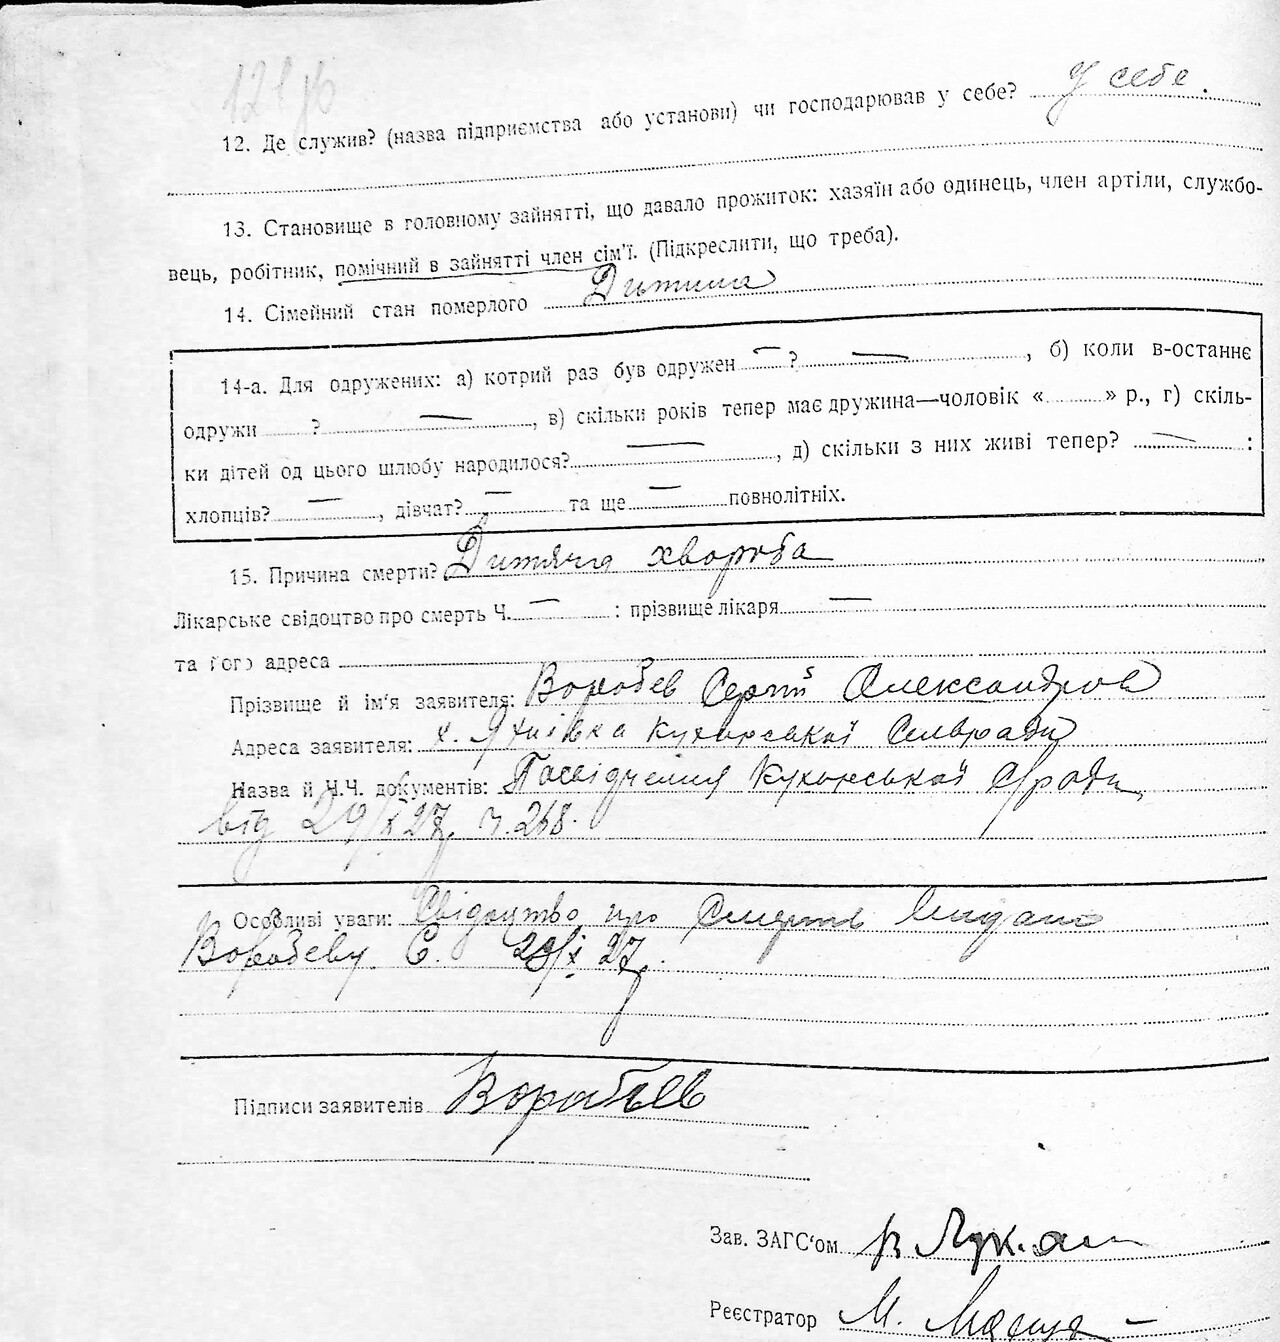 12. Де служив? (назва підприємства або установи) чи господарював у себе? У себе.
13. Становище в головному зайнятті, що давало прожиток: хазяїн або одинець, член артіли, службо-
вець, робітник, помічний в зайнятті член сім'ї. (Підкреслити, що треба).
14. Сімейний стан померлого Дитина
14-а. Для одружених: а) котрий раз був одружен — ? —, б) коли в-останнє
одружи ? —, в) скільки років тепер має дружина—чоловік « » р., г) скіль-
ки дітей од цього шлюбу народилося? —, д) скільки з них живі тепер? — :
хлопців? —, дівчат? — та ще — повнолітніх.
15. Причина смерти? Дитяча хвороба
Лікарське свідоцтво про смерть Ч. — : прізвище лікаря —
та його адреса
Прізвище й ім'я заявителя: Воробєв Сергій Александров
Адреса заявителя: х. Яхнівка Кухарської Сельради
Назва й Ч.Ч. документів: Посвідчення Кухарської С/ради
від 29/X 27. ч. 268.
Особливі уваги: Свідоцтво про Смерть видано
Воробєву С. 29/X 27.
Підписи заявителів Воробьев
Зав. ЗАГС'ом
Реєстратор М.